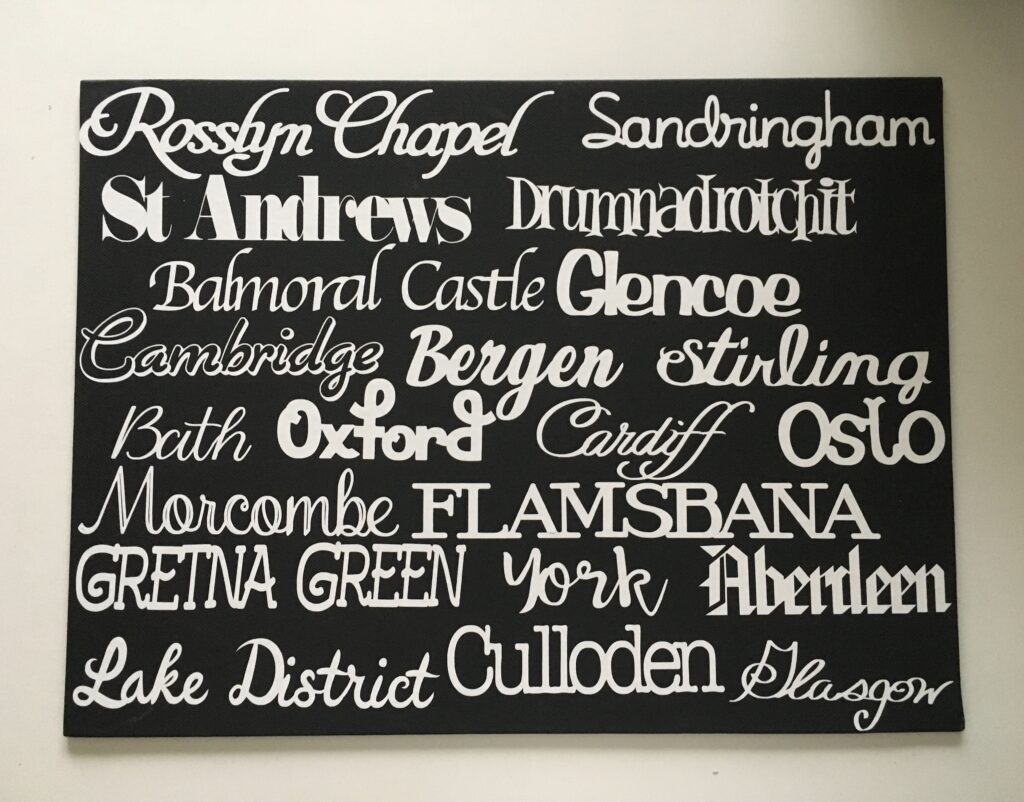 Rosslyn Chapel Sandringham
St Andrews Drumnadrotchit
Balmoral Castle Glencoe
Cambridge Bergen Stirling
Bath Oxford Cardiff Oslo
Morcombe FLAMSBANA
GRETNA GREEN York Aberdeen
Lake District Culloden Glasgow